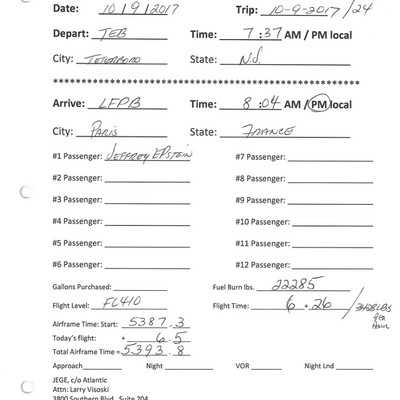 Date: 10/9/2017 Trip: 10-9-2017/24
Depart: TEB Time: 7:37 AM / PM local
City: TETERBORO State: N.J.
Arrive: LFPB Time: 8:04 AM / PM local
City: PARIS State: FRANCE
#1 Passenger: JEFFREY EPSTEIN #7 Passenger:
#2 Passenger: #8 Passenger:
#3 Passenger: #9 Passenger:
#4 Passenger: #10 Passenger:
#5 Passenger: #11 Passenger:
#6 Passenger: #12 Passenger:
Gallons Purchased: Fuel Burn lbs. 22285
Flight Level: FL410 Flight Time: 6 + 26 / 3428 LBS PER HOUR
Airframe Time: Start: 5387.3
Today's flight: + 6.5
Total Airframe Time = 5393.8
Approach Night VOR Night Lnd
JEGE, c/o Atlantic
Attn: Larry Visoski
3800 Southern Blvd. Suite 204